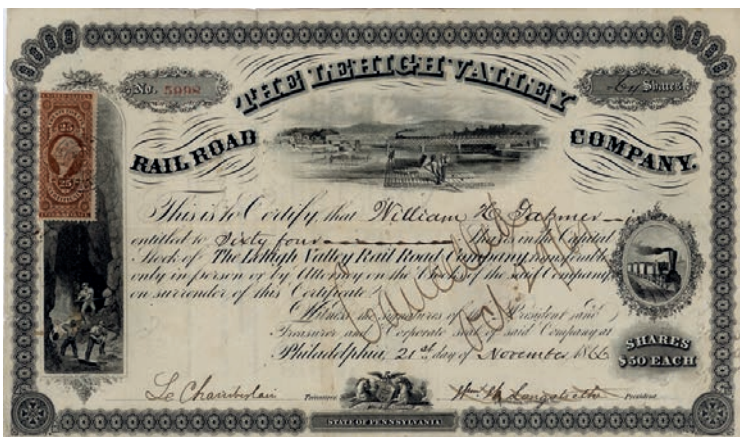 No. 5998
THE LEHIGH VALLEY
64 Shares
RAIL ROAD
COMPANY.
25
25
This is to Certify, that William H. is
entitled to Sixty four Shares in the Capital
Stock of The Lehigh Valley Rail Road Company, transferable
only in person or by Attorney on the Books of the said Company
on surrender of this Certificate.
Cancelled
Witness the signatures of the President and
Treasurer and Corporate seal of said Company at
Philadelphia, 21st day of November 1866
SHARES
$50 EACH
Treasurer
President
STATE OF PENNSYLVANIA